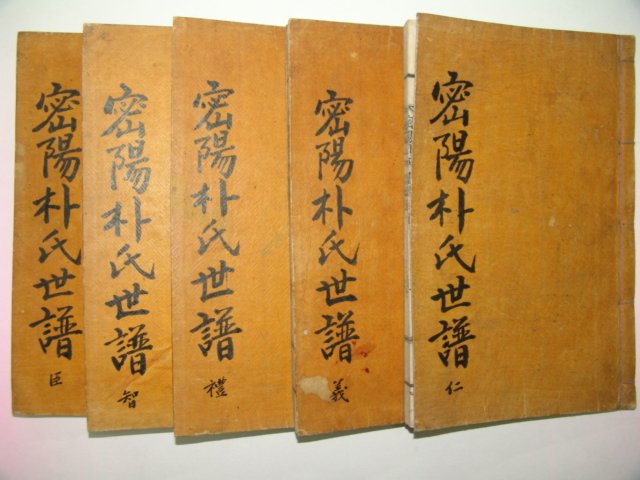 密陽朴氏世譜
仁
密陽朴氏世譜
義
密陽朴氏世譜
禮
密陽朴氏世譜
智
密陽朴氏世譜
臣